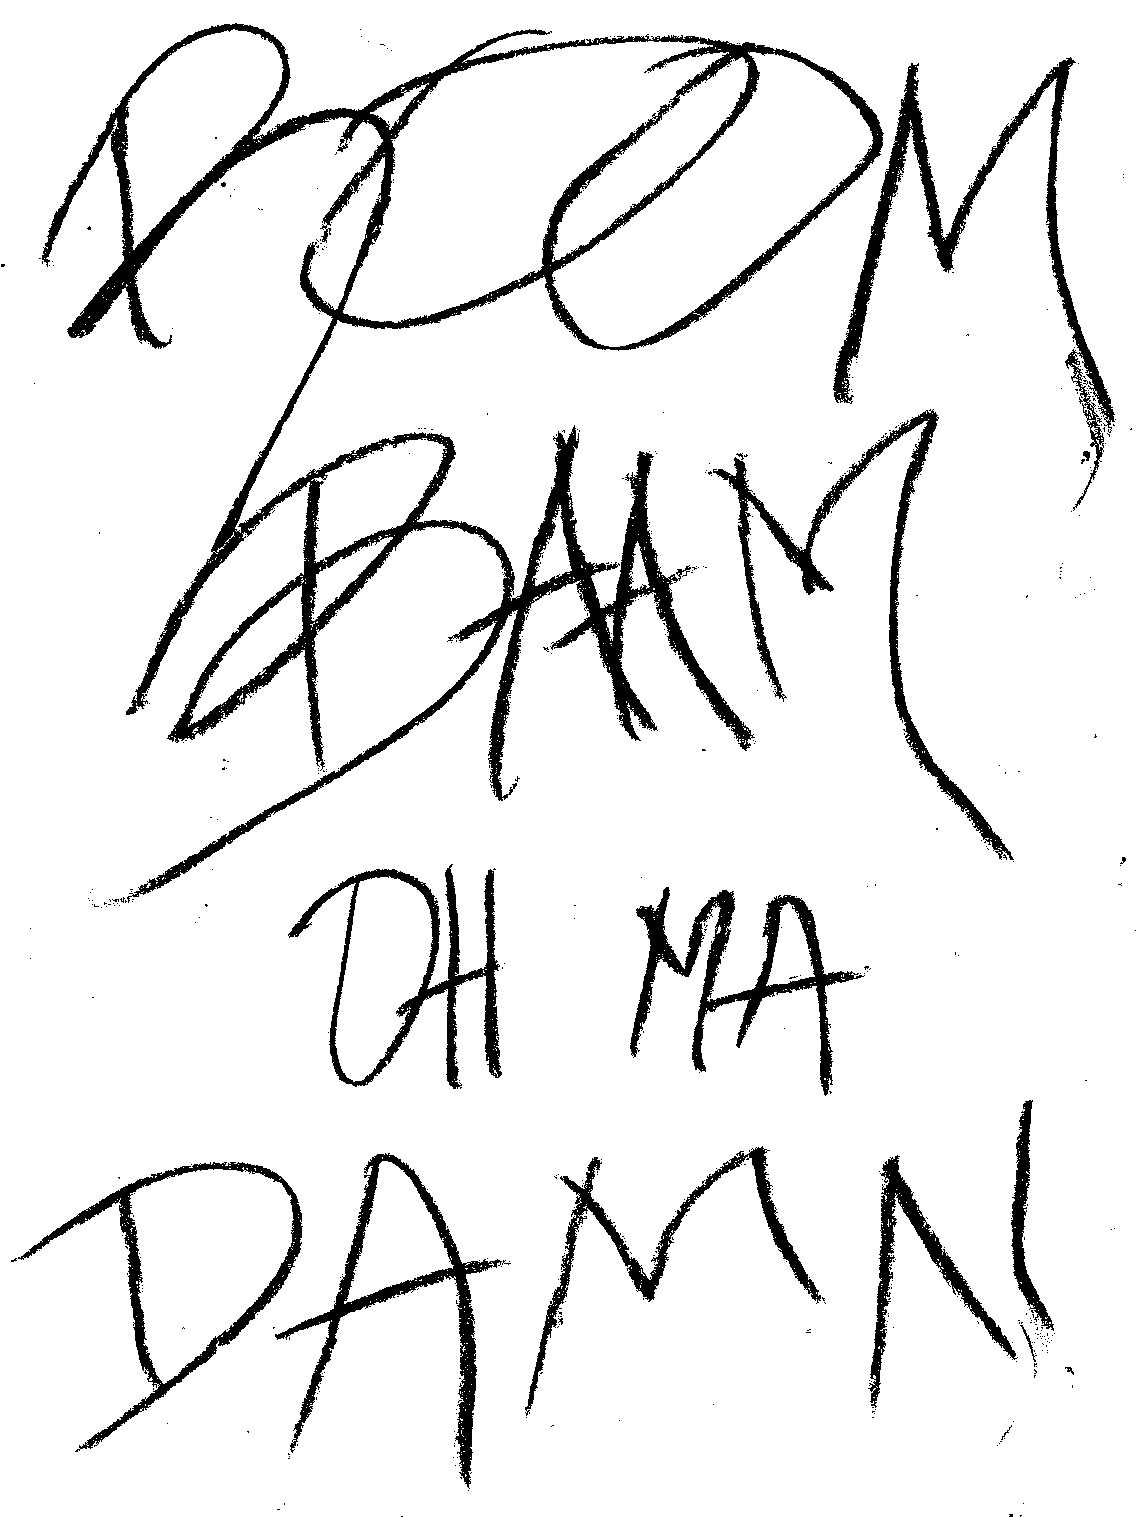 BOOM
BAAM
OH MA
DAMN